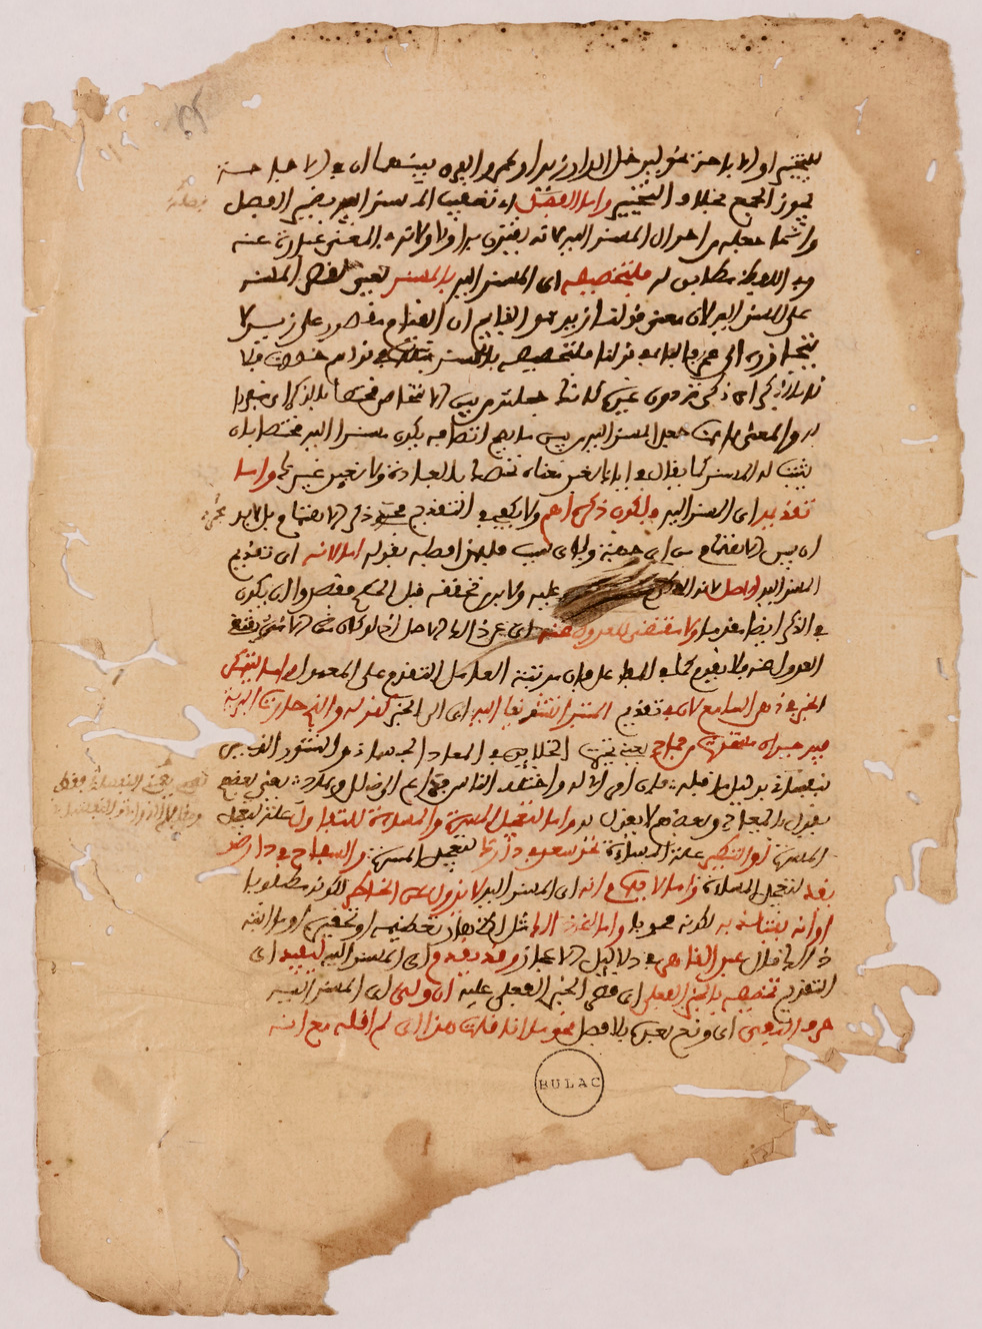 للتخيير او الاباحة نحو ليدخل الدار زيد او عمرو والفرق بينهما ان في الاباحة
يجوز الجمع بخلاف التخيير واما الفصل اى تعقيب المسند اليه بضمير الفصل
وانما جعله من احوال المسند اليه لانه يقترن به اولا ولانه في المعنى عبارة عنه
وفى اللفظ مطابق له فلتخصيصه اى المسند اليه بالمسند يعنى لقصر المسند
على المسند اليه لان معنى قولنا زيد هو القايم ان القيام مقصور على زيد لا
يتجاوزه الى عمرو فالباء في قوله فلتخصيصه بالمسند مثلها في قولهم خصصت فلانا
بالذكر اى ذكرته دون غيره كانك جعلته من بين الاشخاص مختصا بالذكر اى منفردا
به والمعنى هاهنا جعل المسند اليه من بين ما يصح اتصافه بكونه مسندا اليه مختصا بان
يثبت له المسند كما يقال في اياك نعبد معناه نخصك بالعبادة ولا نعبد غيرك واما
تقديمه اى المسند اليه فلكون ذكره اهم ولا يكفى في التقديم مجرد ذكر الاهتمام بل لابد
ان يبين الاهتمام من اى جهة وباى سبب فلهذا فصله بقوله اما لانه اى تقديم
المسند اليه الاصل لانه المحكوم عليه ولابد من تحققه قبل الحكم فقصدوا ان يكون
في الذكر ايضا مقدما ولا مقتضى للعدول عنه اى عن ذلك الاصل اذ لو كان امر يقتضى
العدول عنه فلا يقدم كما في الفاعل فان مرتبة العامل التقدم على المعمول واما ليتمكن
الخبر في ذهن السامع لان في تقديم المبتدا تشويقا اليه اى الى الخبر كقوله والذى حارت البرية
فيه حيوان مستحدث من جماد يعنى تحيرت الخلايق في المعاد الجسمانى والنشور الذى
بدليل ما قبله بان امر الاله واختلف الناس فداع الى ضلال وهاد يعنى بعضهم
يقول بالمعاد وبعضهم لا يقول به واما لتعجيل المسرة او المساءة للتفاؤل علة لتعجيل
المسرة او التطير علة المساءة نحو سعد في دارك لتعجيل المسرة والسفاح في دار
لتعجيل المساءة واما لايهام انه اى المسند اليه لا يزول عن الخاطر لكونه مطلوبا
او انه يستلذ به لكونه محبوبا واما لنحو ذلك مثل اظهار تعظيمه او تحقيره او ما اشبه
ذلك قال عبد القاهر في دلايل الاعجاز وقد يقدم اى المسند اليه ليفيد اى
التقديم تخصيصه بالخبر الفعلى اى قصر الخبر الفعلى عليه ان ولى اى المسند اليه
حرف النفى اى وقع بعدها بلا فصل نحو ما انا قلت هذا اى لم اقله مع انه
BULAC